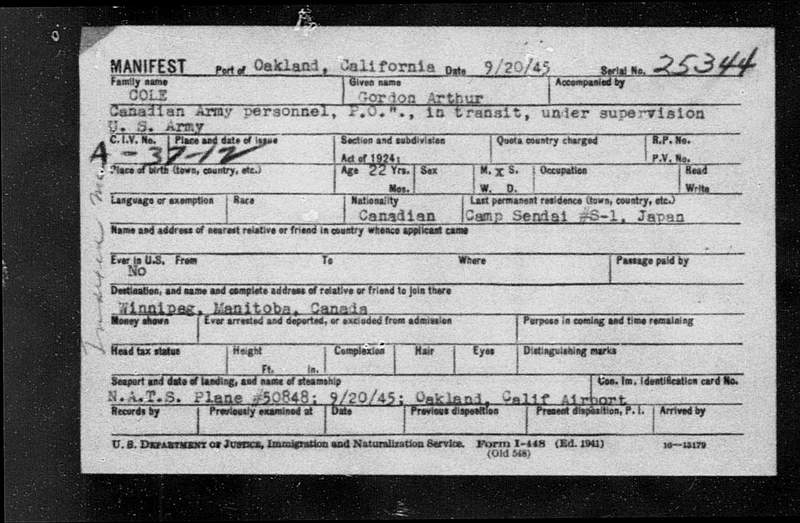 MANIFEST Port of Oakland, California Date 9/20/45 Serial No. 25344
Family name Given name Accompanied by
COLE Gordon Arthur
Canadian Army personnel, P.O.W., in transit, under supervision
U. S. Army
C.I.V. No. Place and date of issue Section and subdivision Quota country charged R.P. No.
A-37-12 Act of 1924: P.V. No.
Place of birth (town, country, etc.) Age 22 Yrs. Sex M. x S. Occupation Read
Mos. W. D. Write
Language or exemption Race Nationality Last permanent residence (town, country, etc.)
Canadian Camp Sendai #S-1, Japan
Name and address of nearest relative or friend in country whence applicant came
Ever in U.S. From To Where Passage paid by
No
Destination, and name and complete address of relative or friend to join there
Winnipeg, Manitoba, Canada
Money shown Ever arrested and deported, or excluded from admission Purpose in coming and time remaining
Head tax status Height Complexion Hair Eyes Distinguishing marks
Ft. in.
Seaport and date of landing, and name of steamship Con. Im. Identification card No.
N.A.T.S. Plane #50848; 9/20/45; Oakland, Calif Airport
Records by Previously examined at Date Previous disposition Present disposition, P. I. Arrived by
U. S. DEPARTMENT OF JUSTICE, Immigration and Naturalization Service. Form I-448 (Ed. 1941) 16—13179
(Old 548)